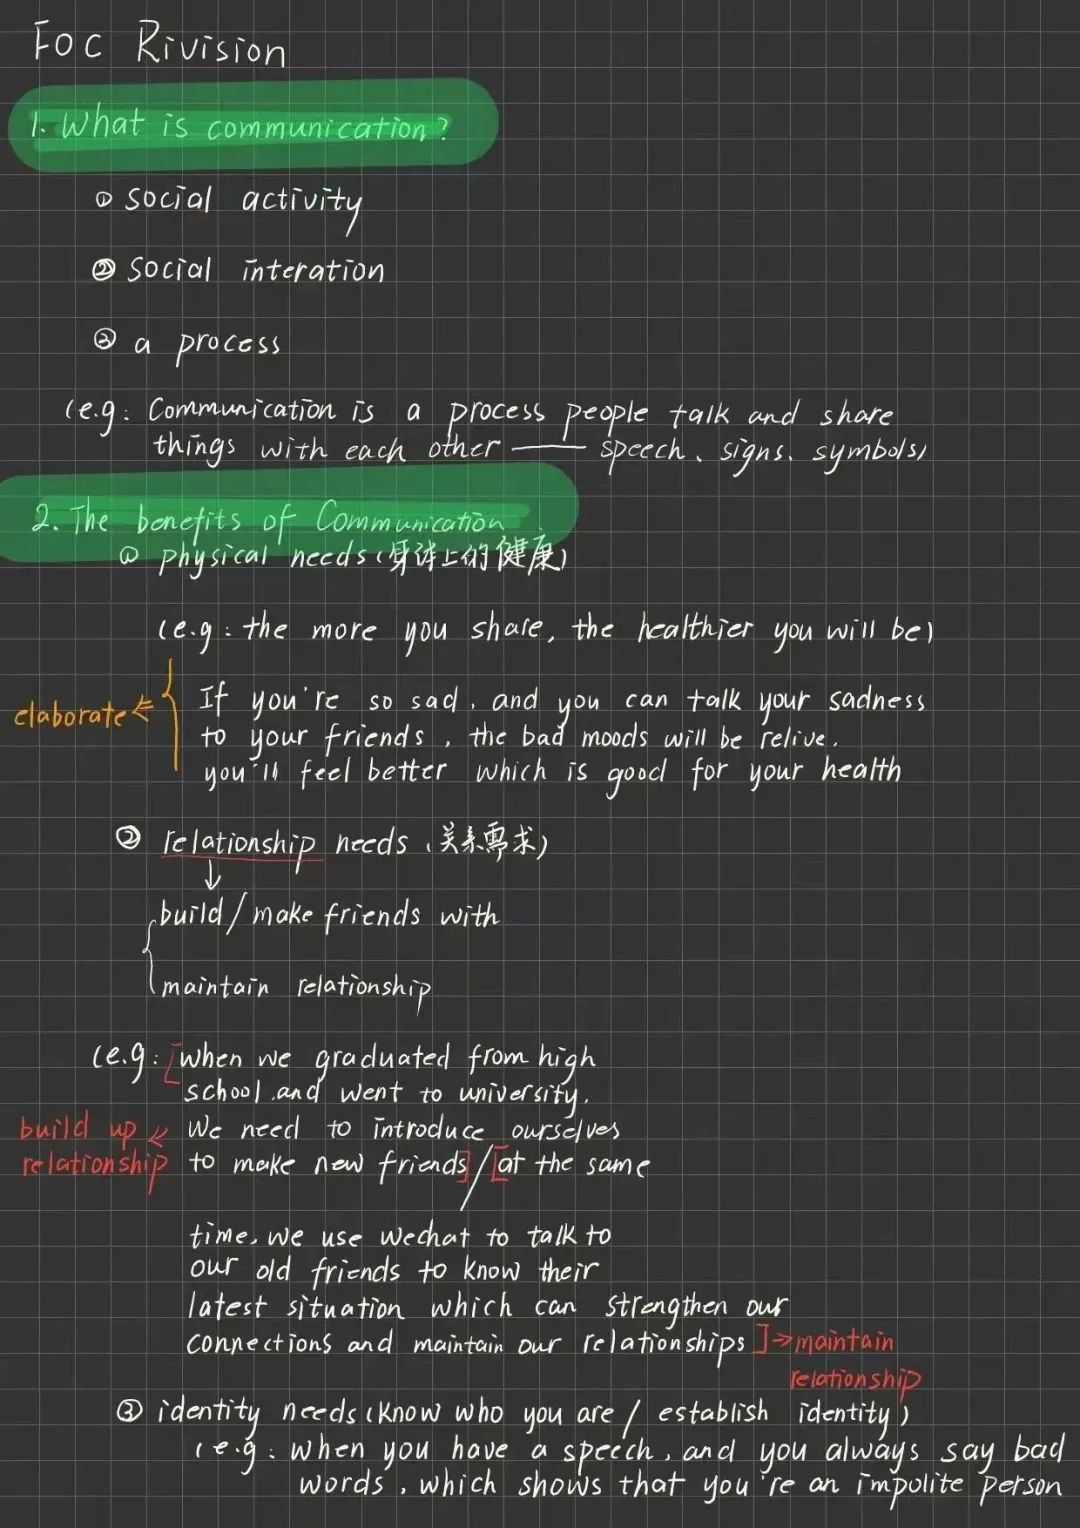 Foc Rivision
1. What is communication?
① social activity
② social interation
③ a process
(e.g: Communication is a process people talk and share
things with each other —— speech、signs、symbols)
2. The benefits of Communication
① physical needs (身体上的健康)
(e.g: the more you share, the healthier you will be)
If you're so sad, and you can talk your sadness
elaborate
to your friends, the bad moods will be relive.
you'll feel better which is good for your health
② relationship needs (关系需求)
↓
build/make friends with
maintain relationship
(e.g: [when we graduated from high
school.and went to university.
build up We need to introduce ourselves
relationship to make new friends]/[at the same
time, we use wechat to talk to
our old friends to know their
latest situation which can strengthen our
connections and maintain our relationships]→maintain
relationship
③ identity needs (know who you are / establish identity)
(e.g: when you have a speech, and you always say bad
words, which shows that you're an impolite person